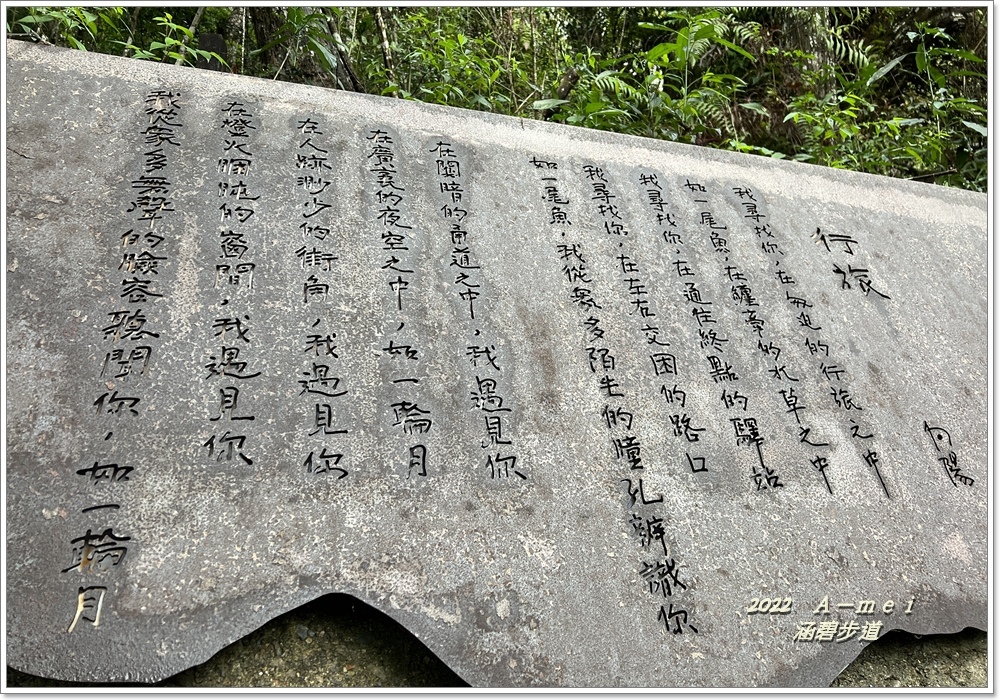 行旅
向陽
我尋找你，在匆迫的行旅之中
如一尾魚，在纏牽的水草之中
我尋找你，在通往終點的驛站
我尋找你，在左右交困的路口
如一尾魚，我從眾多陌生的瞳孔辨識你
在闃暗的甬道之中，我遇見你
在廣袤的夜空之中，如一輪月
在人跡渺少的街角，我遇見你
在燈火的窗間，我遇見你
我從眾多無聲的臉容聽聞你，如一輪月
2022 A－mei
涵碧步道